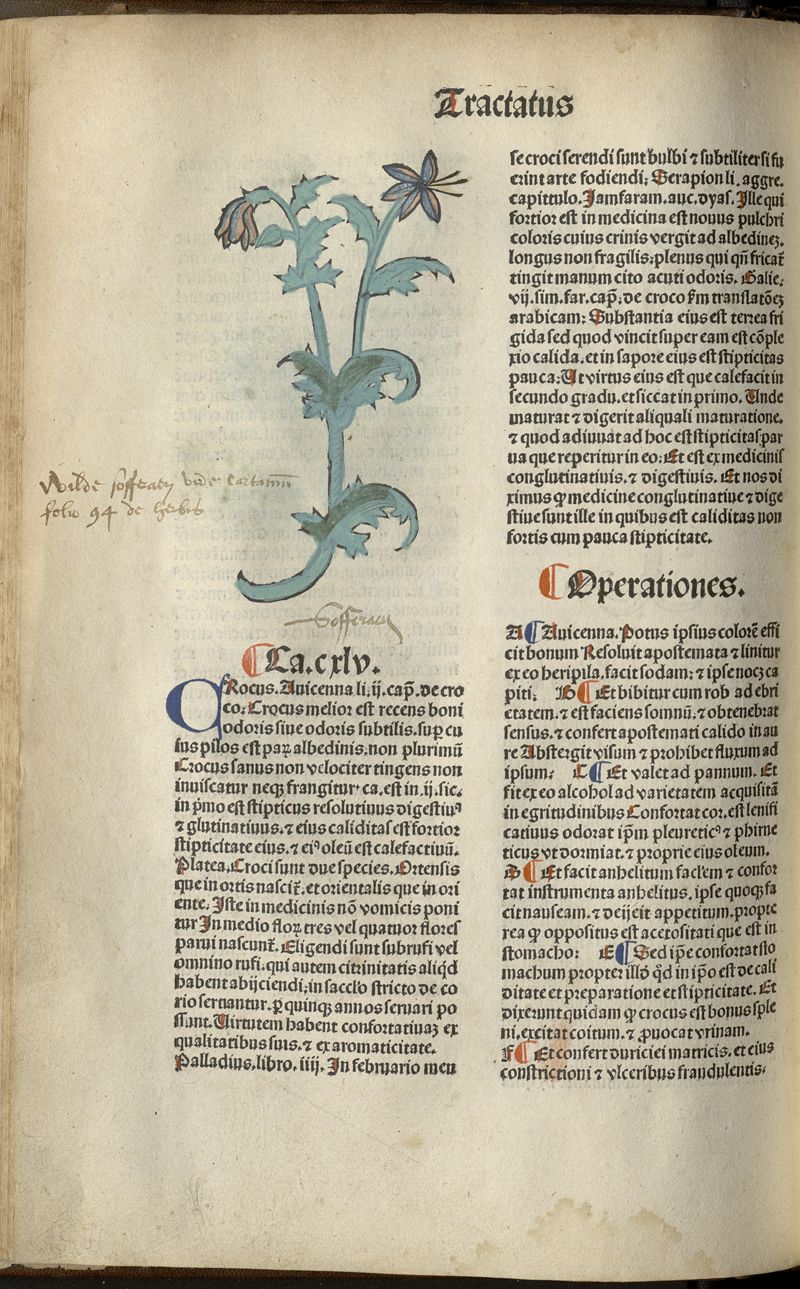 Tractatus
Wilde
folio 94 de herbis
Ca.cxlv.
CRocus. Auicenna li.ij.cap̃. de cro
co. Crocus melior est recens boni
odoris siue odoris subtilis. sup̱ cu
ius pilos est paꝝ albedinis. non plurimũ
Crocus sanus non velociter tingens non
inuiscatur neqꝫ frangitur. ca. est in .ij. sic.
in p̃mo est stipticus resolutiuus digestiuꝰ
⁊ glutinatiuus. ⁊ eius caliditas est fortior
stipticitate eius. ⁊ eiꝰ oleũ est calefactiuũ.
Platea. Croci sunt due species. Ortensis
que in ortis nascit̃. et orientalis que in ori
ente. Iste in medicinis nõ vomicis poni
tur In medio floꝝ tres vel quatuor flores
parui nascunt̃. Eligendi sunt subrufi vel
omnino rufi. qui autem citrinitatis aliqd̓
habent abijciendi. in sacclo stricto de co
rio seruantur. ꝑ quinqꝫ annos seruari po
ssunt. Uirtutem habent confortatiuaꝫ ex
qualitatibus suis. ⁊ ex aromaticitate.
Palladius. libro. iiij. In februario men
se croci serendi sunt bulbi ⁊ subtiliter si fu
erint arte fodiendi. Serapion li. aggre.
capittulo. Jamfaram. auc. dyas. Ille qui
fortior est in medicina est nouus pulchri
coloris cuius crinis vergit ad albedineꝫ.
longus non fragilis. plenus qui qñ fricat̃
tingit manum cito acuti odoris. Galie.
vij. sim. far. cap̃. de croco fm translatõeꝫ
arabicam. Substantia eius est terrea fri
gida sed quod vincit super eam est cõple
xio calida. et in sapore eius est stipticitas
pauca. At virtus eius est que calefacit in
secundo gradu. et siccat in primo. Unde
maturat ⁊ digerit aliquali maturatione.
⁊ quod adiuuat ad hoc est stipticitas par
ua que reperitur in eo. Et est ex medicinis
conglutinatiuis. ⁊ digestiuis. Et nos di
ximus ꝙ medicine conglutinatiue ⁊ dige
stiue sunt ille in quibus est caliditas non
fortis cum pauca stipticitate.
¶Operationes.
A ¶Auicenna. Potus ipsius colorẽ effi
cit bonum Resoluit apostemata ⁊ linitur
ex eo heripila. facit sodam. ⁊ ipse nocꝫ ca
piti. B ¶Et bibitur cum rob ad ebri
etatem. ⁊ est faciens somnũ. ⁊ obtenebrat
sensus. ⁊ confert apostemati calido in au
re Abstergit visum ⁊ prohibet fluxum ad
ipsum. C ¶Et valet ad pannum. Et
fit ex eo alcohol ad varietatem acquisitã
in egritudinibus Confortat cor. est lenifi
catiuus odorat ip̃m pleureticꝰ ⁊ phrene
ticus vt dormiat. ⁊ proprie eius oleum.
D ¶Et facit anhelitum faclem ⁊ confor
tat instrumenta anhelitus. ipse quoqꝫ fa
cit nauseam. ⁊ deijcit appetitum. propte
rea ꝙ oppositus est acetositati que est in
stomacho. E ¶Sed ip̃e confortat sto
machum propter illð qd̓ in ip̃o est de cali
ditate et preparatione et stipticitate. Et
dixerunt quidam ꝙ crocus est bonus sple
ni. excitat coitum. ⁊ ꝓuocat vrinam.
F ¶Et confert duriciei matricis. et eius
constrictioni ⁊ vlceribus fraudulentis.